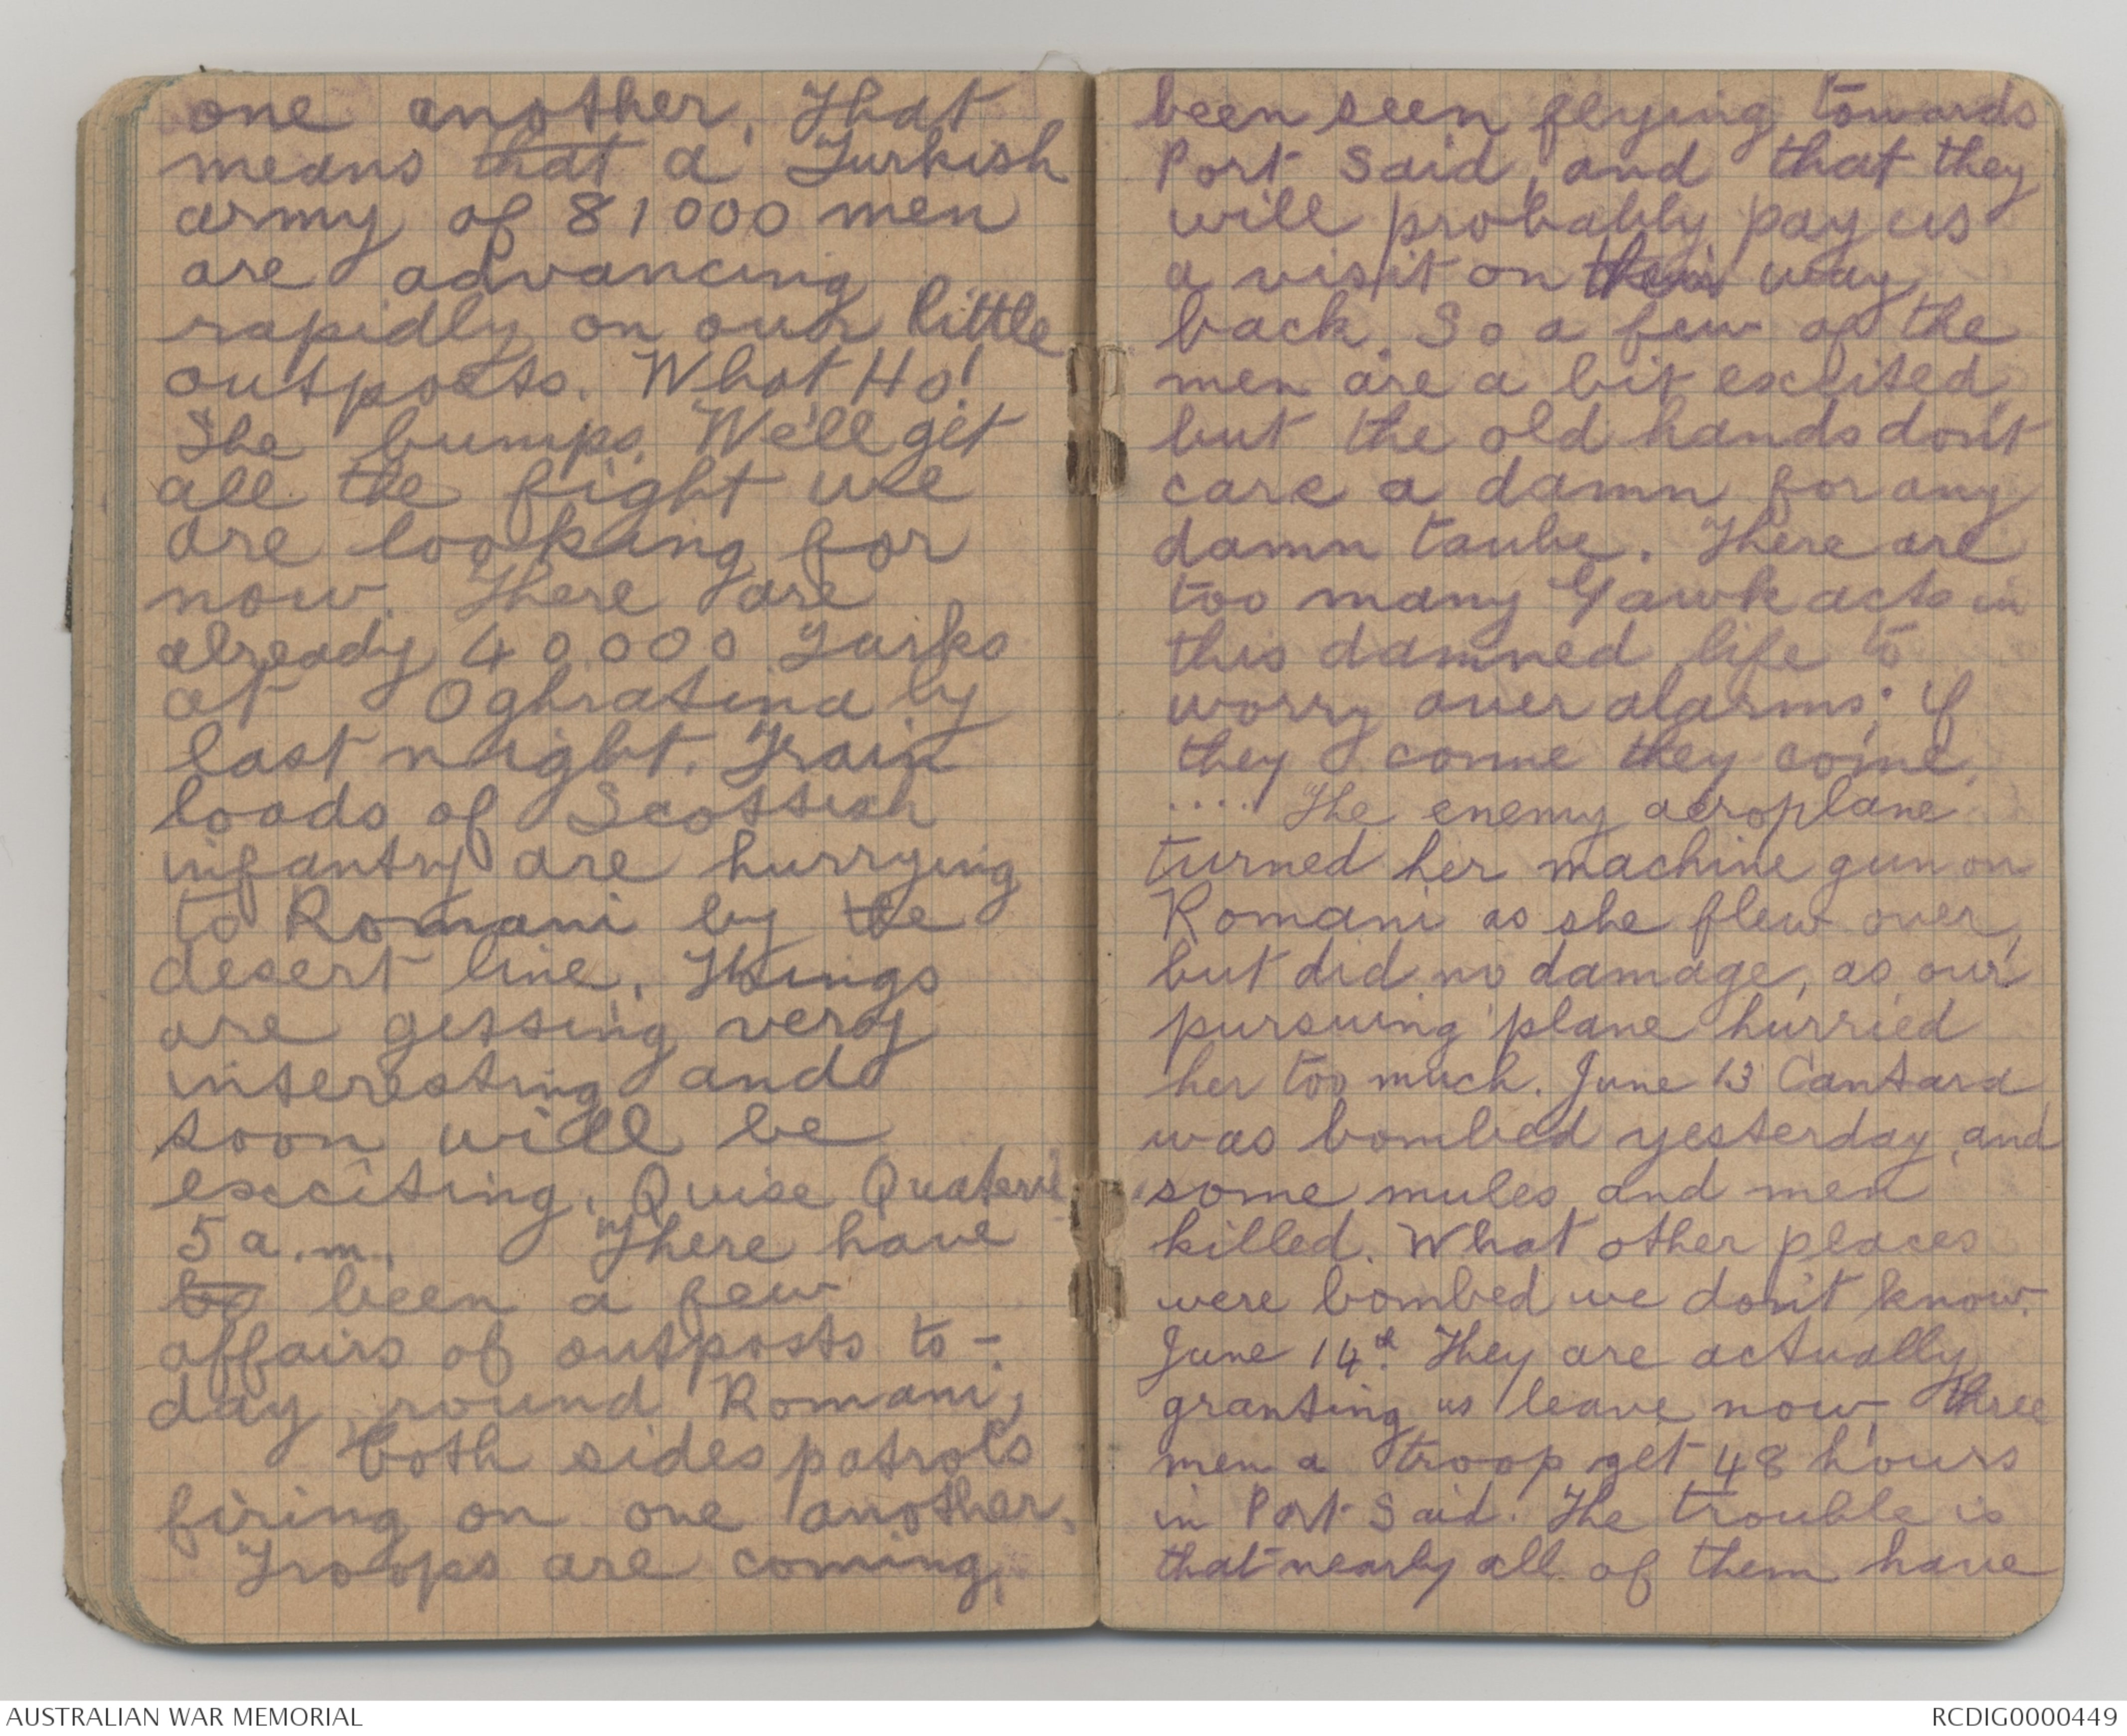 one another. That
means that a Turkish
army of 81000 men
are advancing
rapidly on our little
outposts. What Ho!
The bumps. We'll get
all the fight we
are looking for
now. There are
already 40000 Turks
at Oghratina by
last night. Train
loads of Scottish
infantry are hurrying
to Romani by the
desert line. Things
are getting very
interesting and
soon will be
exciting. Quise
5 a.m. There have
been a few
affairs of outposts to-
day round Romani,
both sides patrols
firing on one another.
Troops are coming,
been seen flying towards
Port Said, and that they
will probably pay us
a visit on their way
back. So a few of the
men are a bit excited,
but the old hands don't
care a damn for any
damn taube. There are
too many Gawk acts in
this damned life to
worry over alarms; if
they come they come.
.... The enemy aeroplane
turned her machine gun on
Romani as she flew over,
but did no damage, as our
pursuing plane hurried
her too much. June 13 Cantara
was bombed yesterday, and
some mules and men
killed. What other places
were bombed we don't know.
June 14th. They are actually
granting us leave now, three
men a troop get 48 hours
in Port Said. The trouble is
that nearly all of them have
AUSTRALIAN WAR MEMORIAL
RCDIG0000449